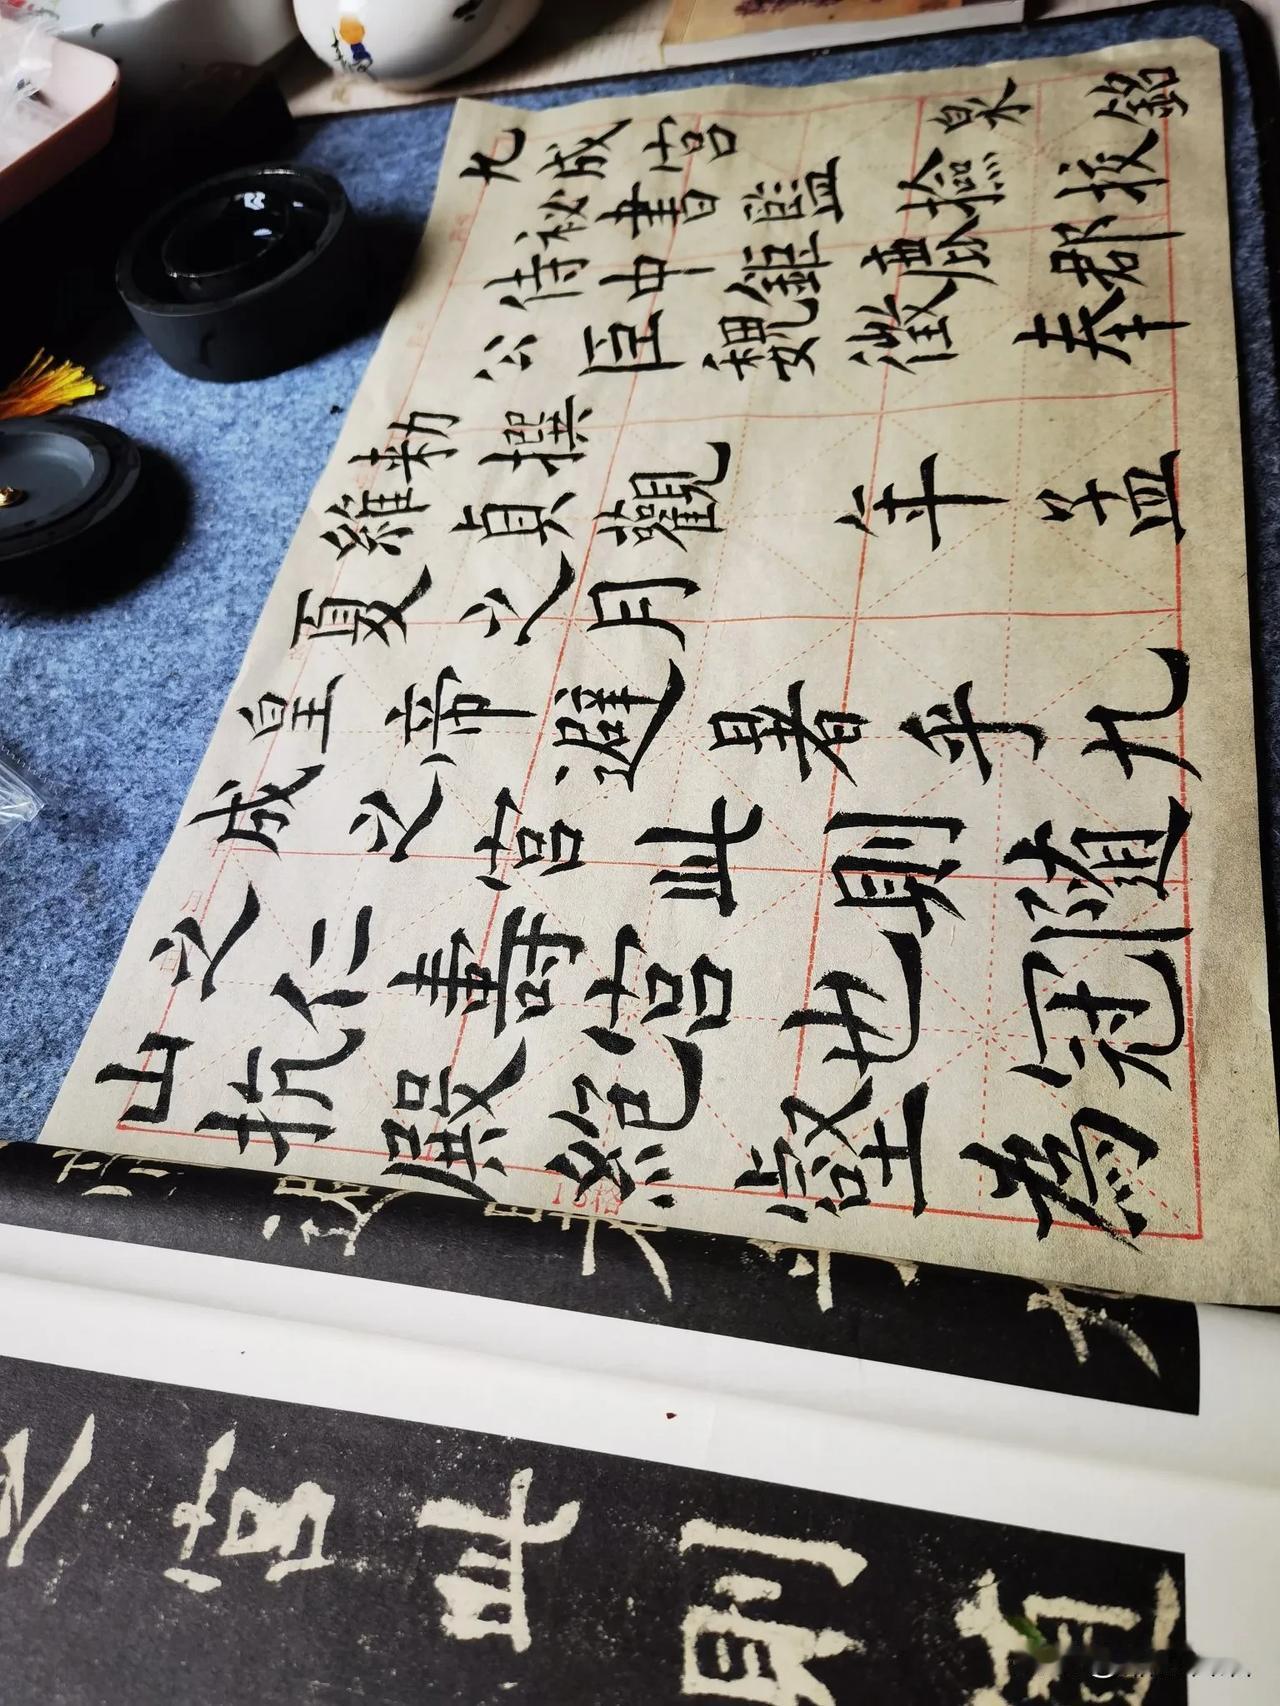 九成宮泉銘
秘書監撿校
侍中鉅鹿郡
公臣魏徵奉
勑撰
維貞觀年孟
夏之月
皇帝避暑乎九
成之宮此則隨
之仁壽宮也冠
山抗殿絕壑為
宮此則